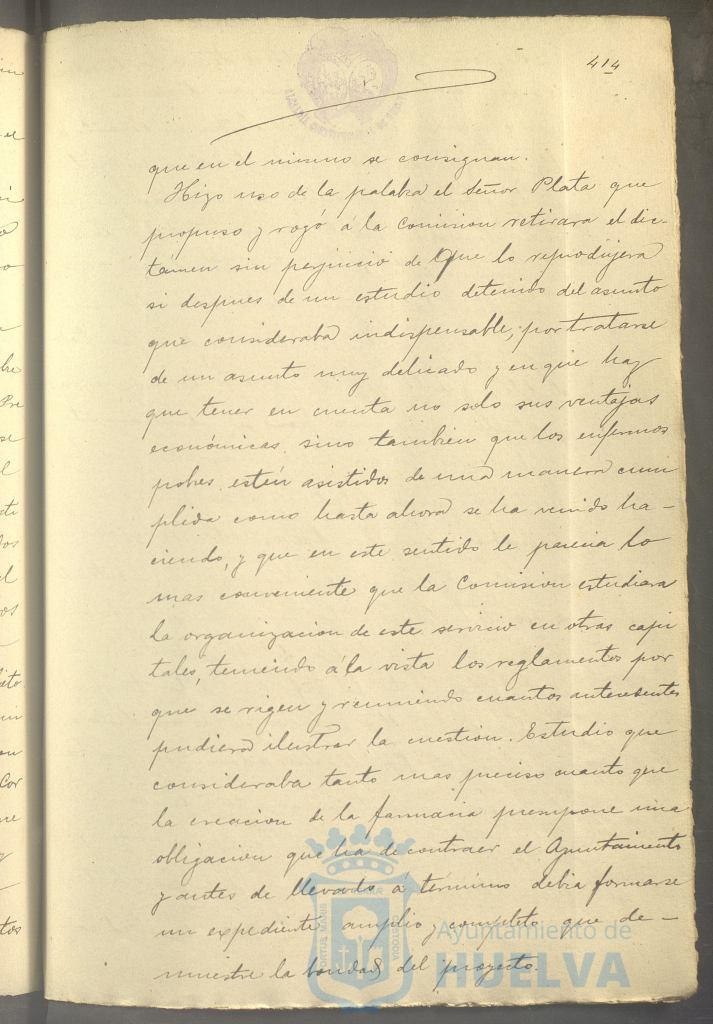 414
que en el mismo se consignan.
Hizo uso de la palabra el Señor Plata que
propuso y rogó á la Comision retirara el dic-
tamen sin perjuicio de que lo reprodujera
si despues de un estudio detenido del asunto
que consideraba indispensable, por tratarse
de un asunto muy delicado y en que hay
que tener en cuenta no solo sus ventajas
económicas sino tambien que los enfermos
pobres estén asistidos de una manera cum
plida como hasta ahora se ha venido ha-
ciendo, y que en este sentido le parecia lo
mas conveniente que la Comision estudiara
la organizacion de este servicio en otras capi
tales, teniendo á la vista los reglamentos por
que se rigen y reuniendo cuantos antecedentes
pudiera ilustrar la cuestion. Estudio que
consideraba tanto mas preciso cuanto que
la creacion de la farmacia presupone una
obligacion que ha de contraer el Ayuntamiento
y antes de llevarlo á término debia formarse
un expediente amplio y completo que de-
muestre la bondad del proyecto.
Ayuntamiento de
HUELVA
PORTUS MARIS
CUSTODIA